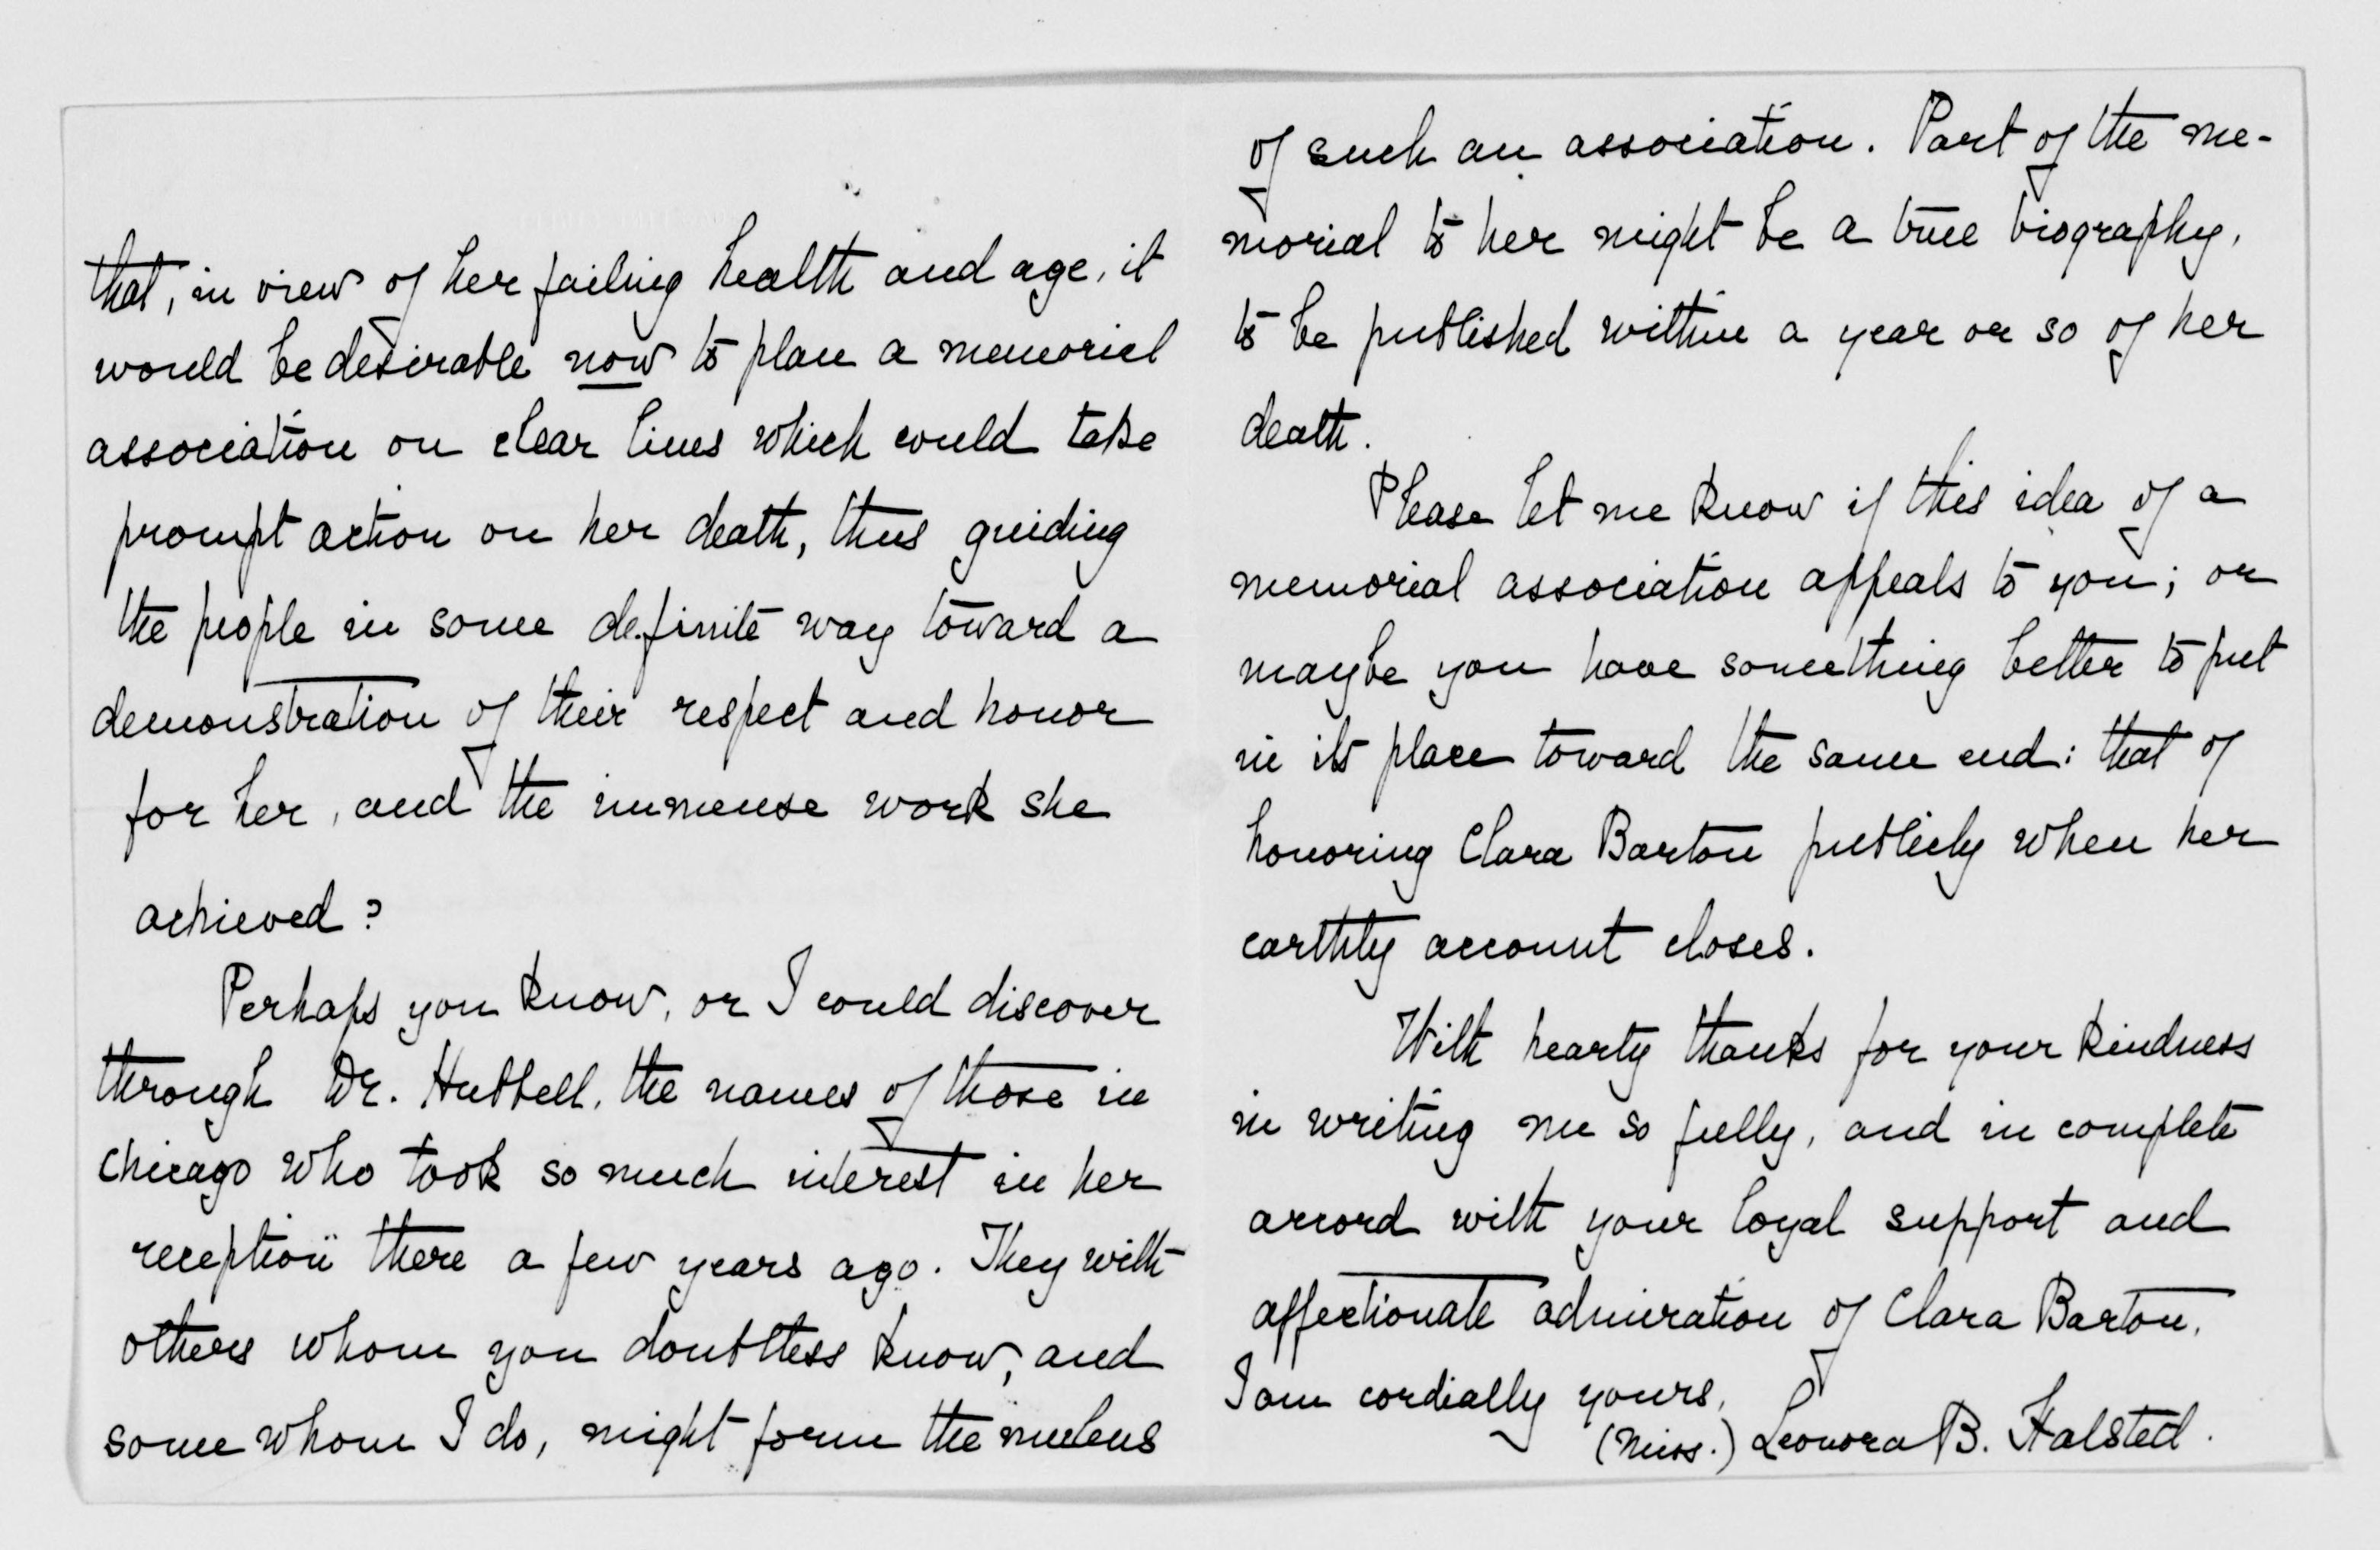 that, in view of her failing health and age, it
would be desirable now to plan a memorial
association on clear lines which could take
prompt action on her death, thus guiding
the people in some definite way toward a
demonstration of their respect and honor
for her, and the immense work she
achieved?
Perhaps you know, or I could discover
through Dr. Hubbell, the names of those in
Chicago who took so much interest in her
reception there a few years ago. They with
others whom you doubtless know, and
some whom I do, might form the nucleus
of such an association. Part of the me-
morial to her might be a true biography,
to be published within a year or so of her
death.
Please let me know if this idea of a
memorial association appeals to you; or
maybe you have something better to put
in its place toward the same end: that of
honoring Clara Barton publicly when her
earthly account closes.
With hearty thanks for your kindness
in writing me so fully, and in complete
accord with your loyal support and
affectionate admiration of Clara Barton,
I am cordially yours,
(Miss.) Leonora B. Halsted.